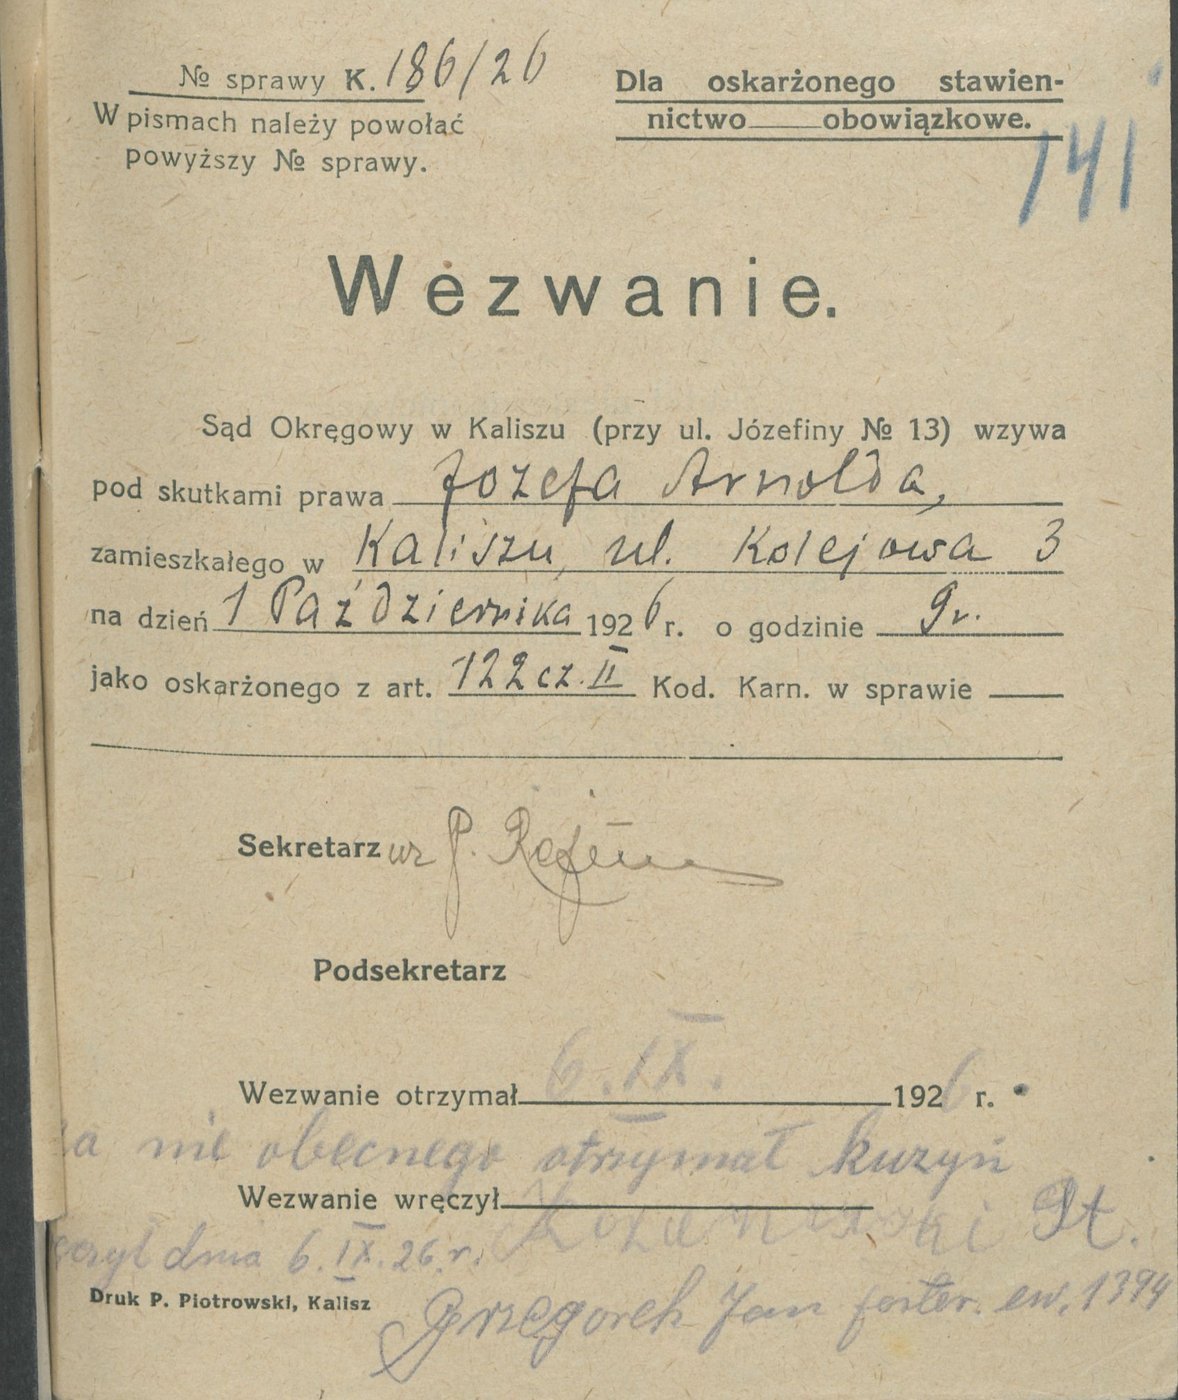 № sprawy K. 186/26
W pismach należy powołać
powyższy № sprawy.
Dla oskarżonego stawien-
nictwo obowiązkowe.
141
Wezwanie.
Sąd Okręgowy w Kaliszu (przy ul. Józefiny № 13) wzywa
pod skutkami prawa Józefa Arnolda,
zamieszkałego w Kaliszu, ul. Kolejowa 3
na dzień 1 Października 1926 r. o godzinie 9 r.
jako oskarżonego z art. 122 cz. II Kod. Karn. w sprawie
Sekretarz wz
Podsekretarz
Wezwanie otrzymał 6.IX. 1926 r.
za nie obecnego otrzymał kuzyn
Wezwanie wręczył
St.
dnia 6.IX.26.r.
Druk P. Piotrowski, Kalisz
Grzegorek Jan poster. ew. 1394